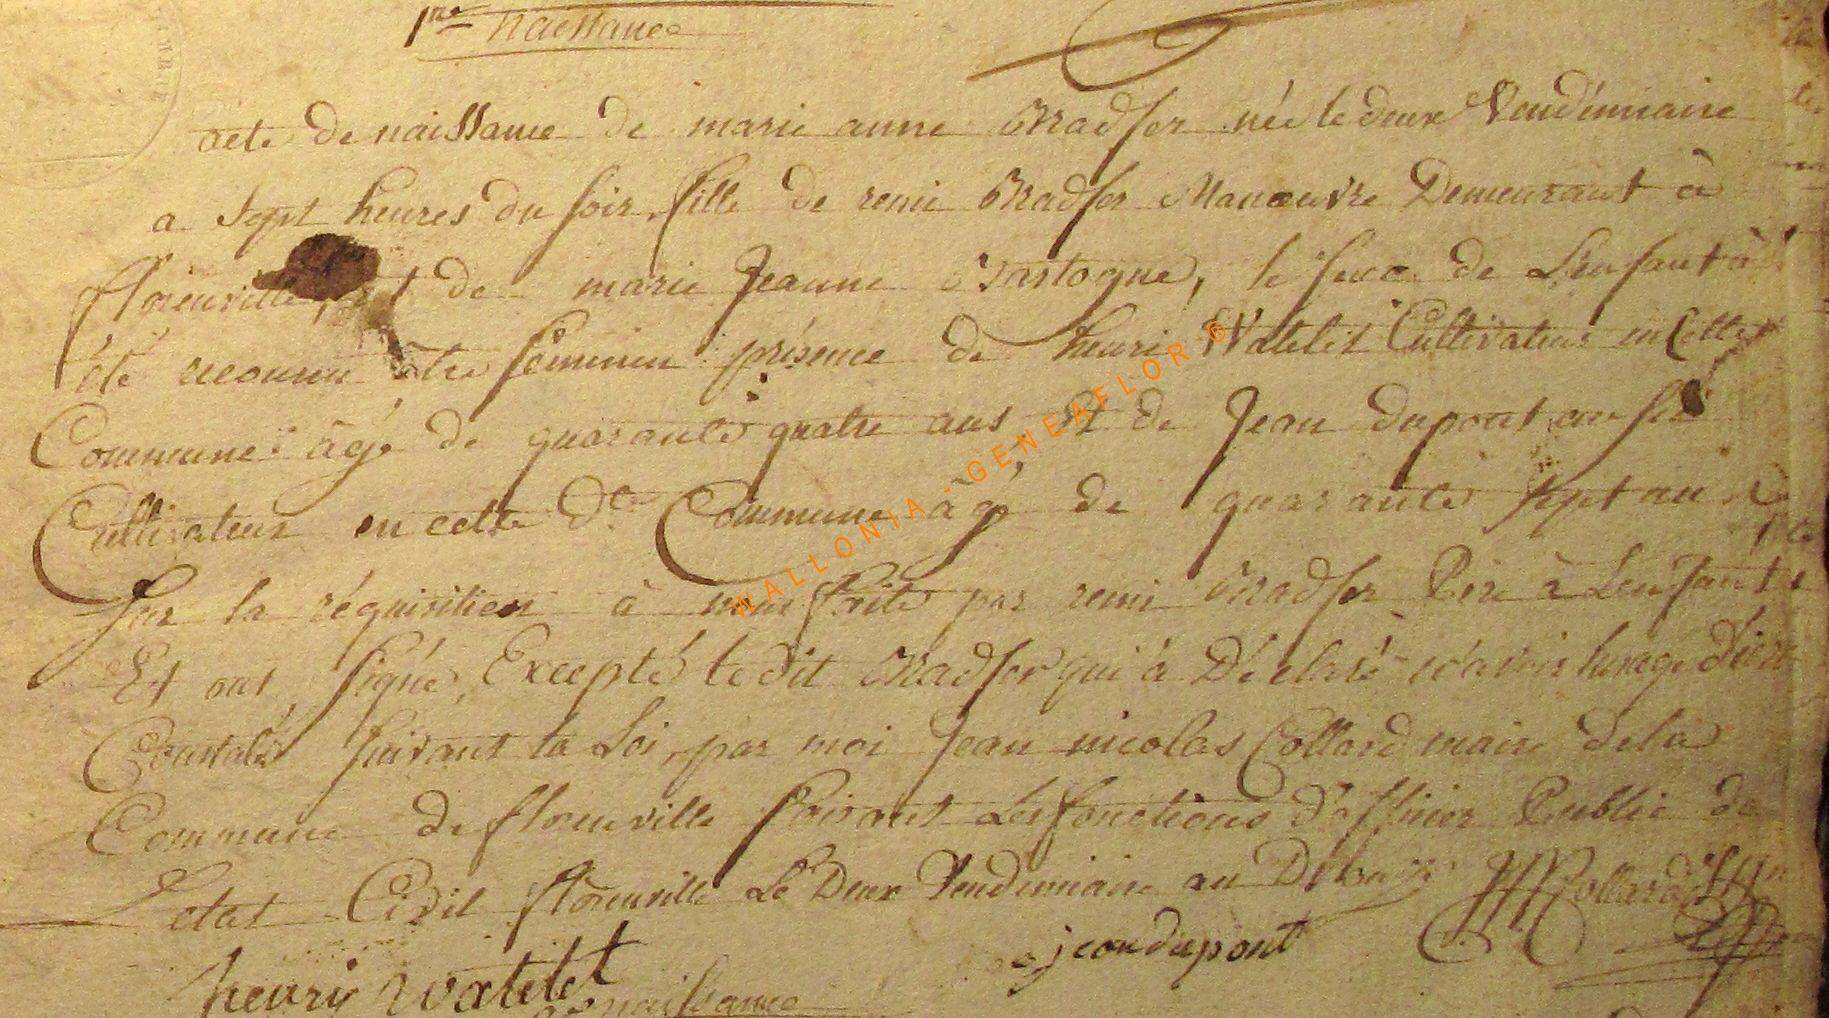 1re naissance
acte de naissance de marie anne Madfer née le deux Vendémiaire
a Sept heures du soir, fille de remi Madfer Manœuvre Demeurant à
florenville, et de marie Jeanne Wastogne, le sexe de L'enfant à
été reconnu être féminin présence de henri Watelet Cultivateur en Cette
Commune âgé de quarante quatre ans, Et de Jean dupont aussi
Cultivateur en cette Dte Commune âgé de quarante sept ans
Sur la réquisition à nous faite par remi Madfer Père à Lenfant
Et ont signé, Excepté le dit Madfer qui à Déclaré n'avoir lusage d'écrire
Constaté suivant la Loi, par moi Jean nicolas Collard maire de la
Commune de florenville faisant Les fonctions d'officier Public de
L'état Civil florenville Le Deux Vendemiaire an JNCollard
jean dupont
henry watelet
de naissance
WALLONIA-GENEAFLOR ©